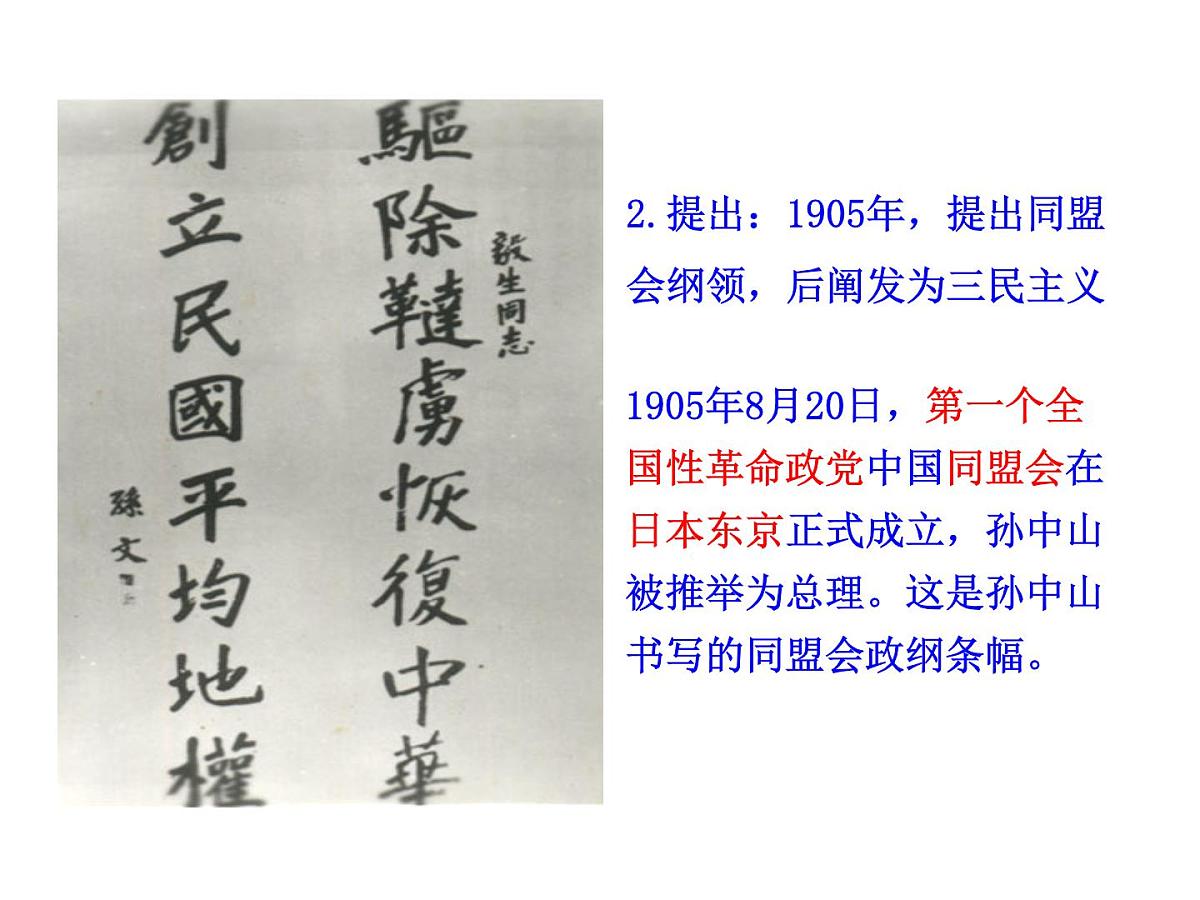 驅除韃虜恢復中華
毅生同志
創立民國平均地權
孫文
2.提出：1905年，提出同盟
会纲领，后阐发为三民主义
1905年8月20日，第一个全
国性革命政党中国同盟会在
日本东京正式成立，孙中山
被推举为总理。这是孙中山
书写的同盟会政纲条幅。